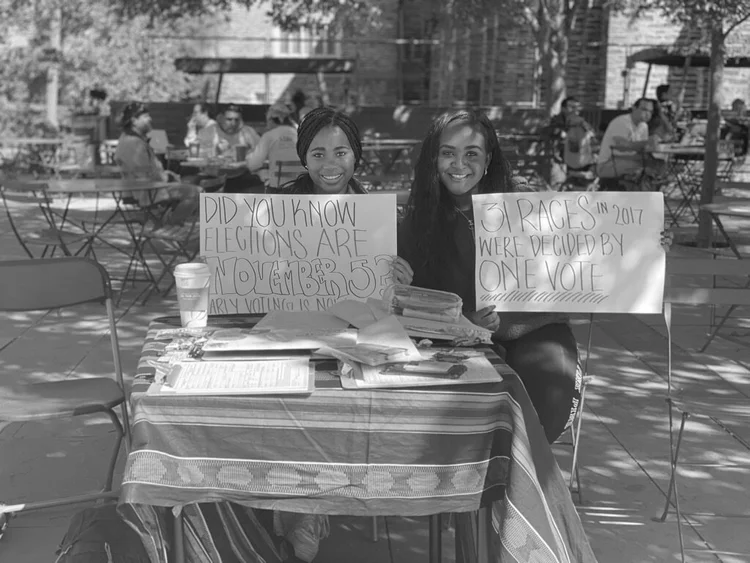 DID YOU KNOW
ELECTIONS ARE
NOVEMBER 5?
EARLY VOTING IS NOW
31 RACES IN 2017
WERE DECIDED BY
ONE VOTE